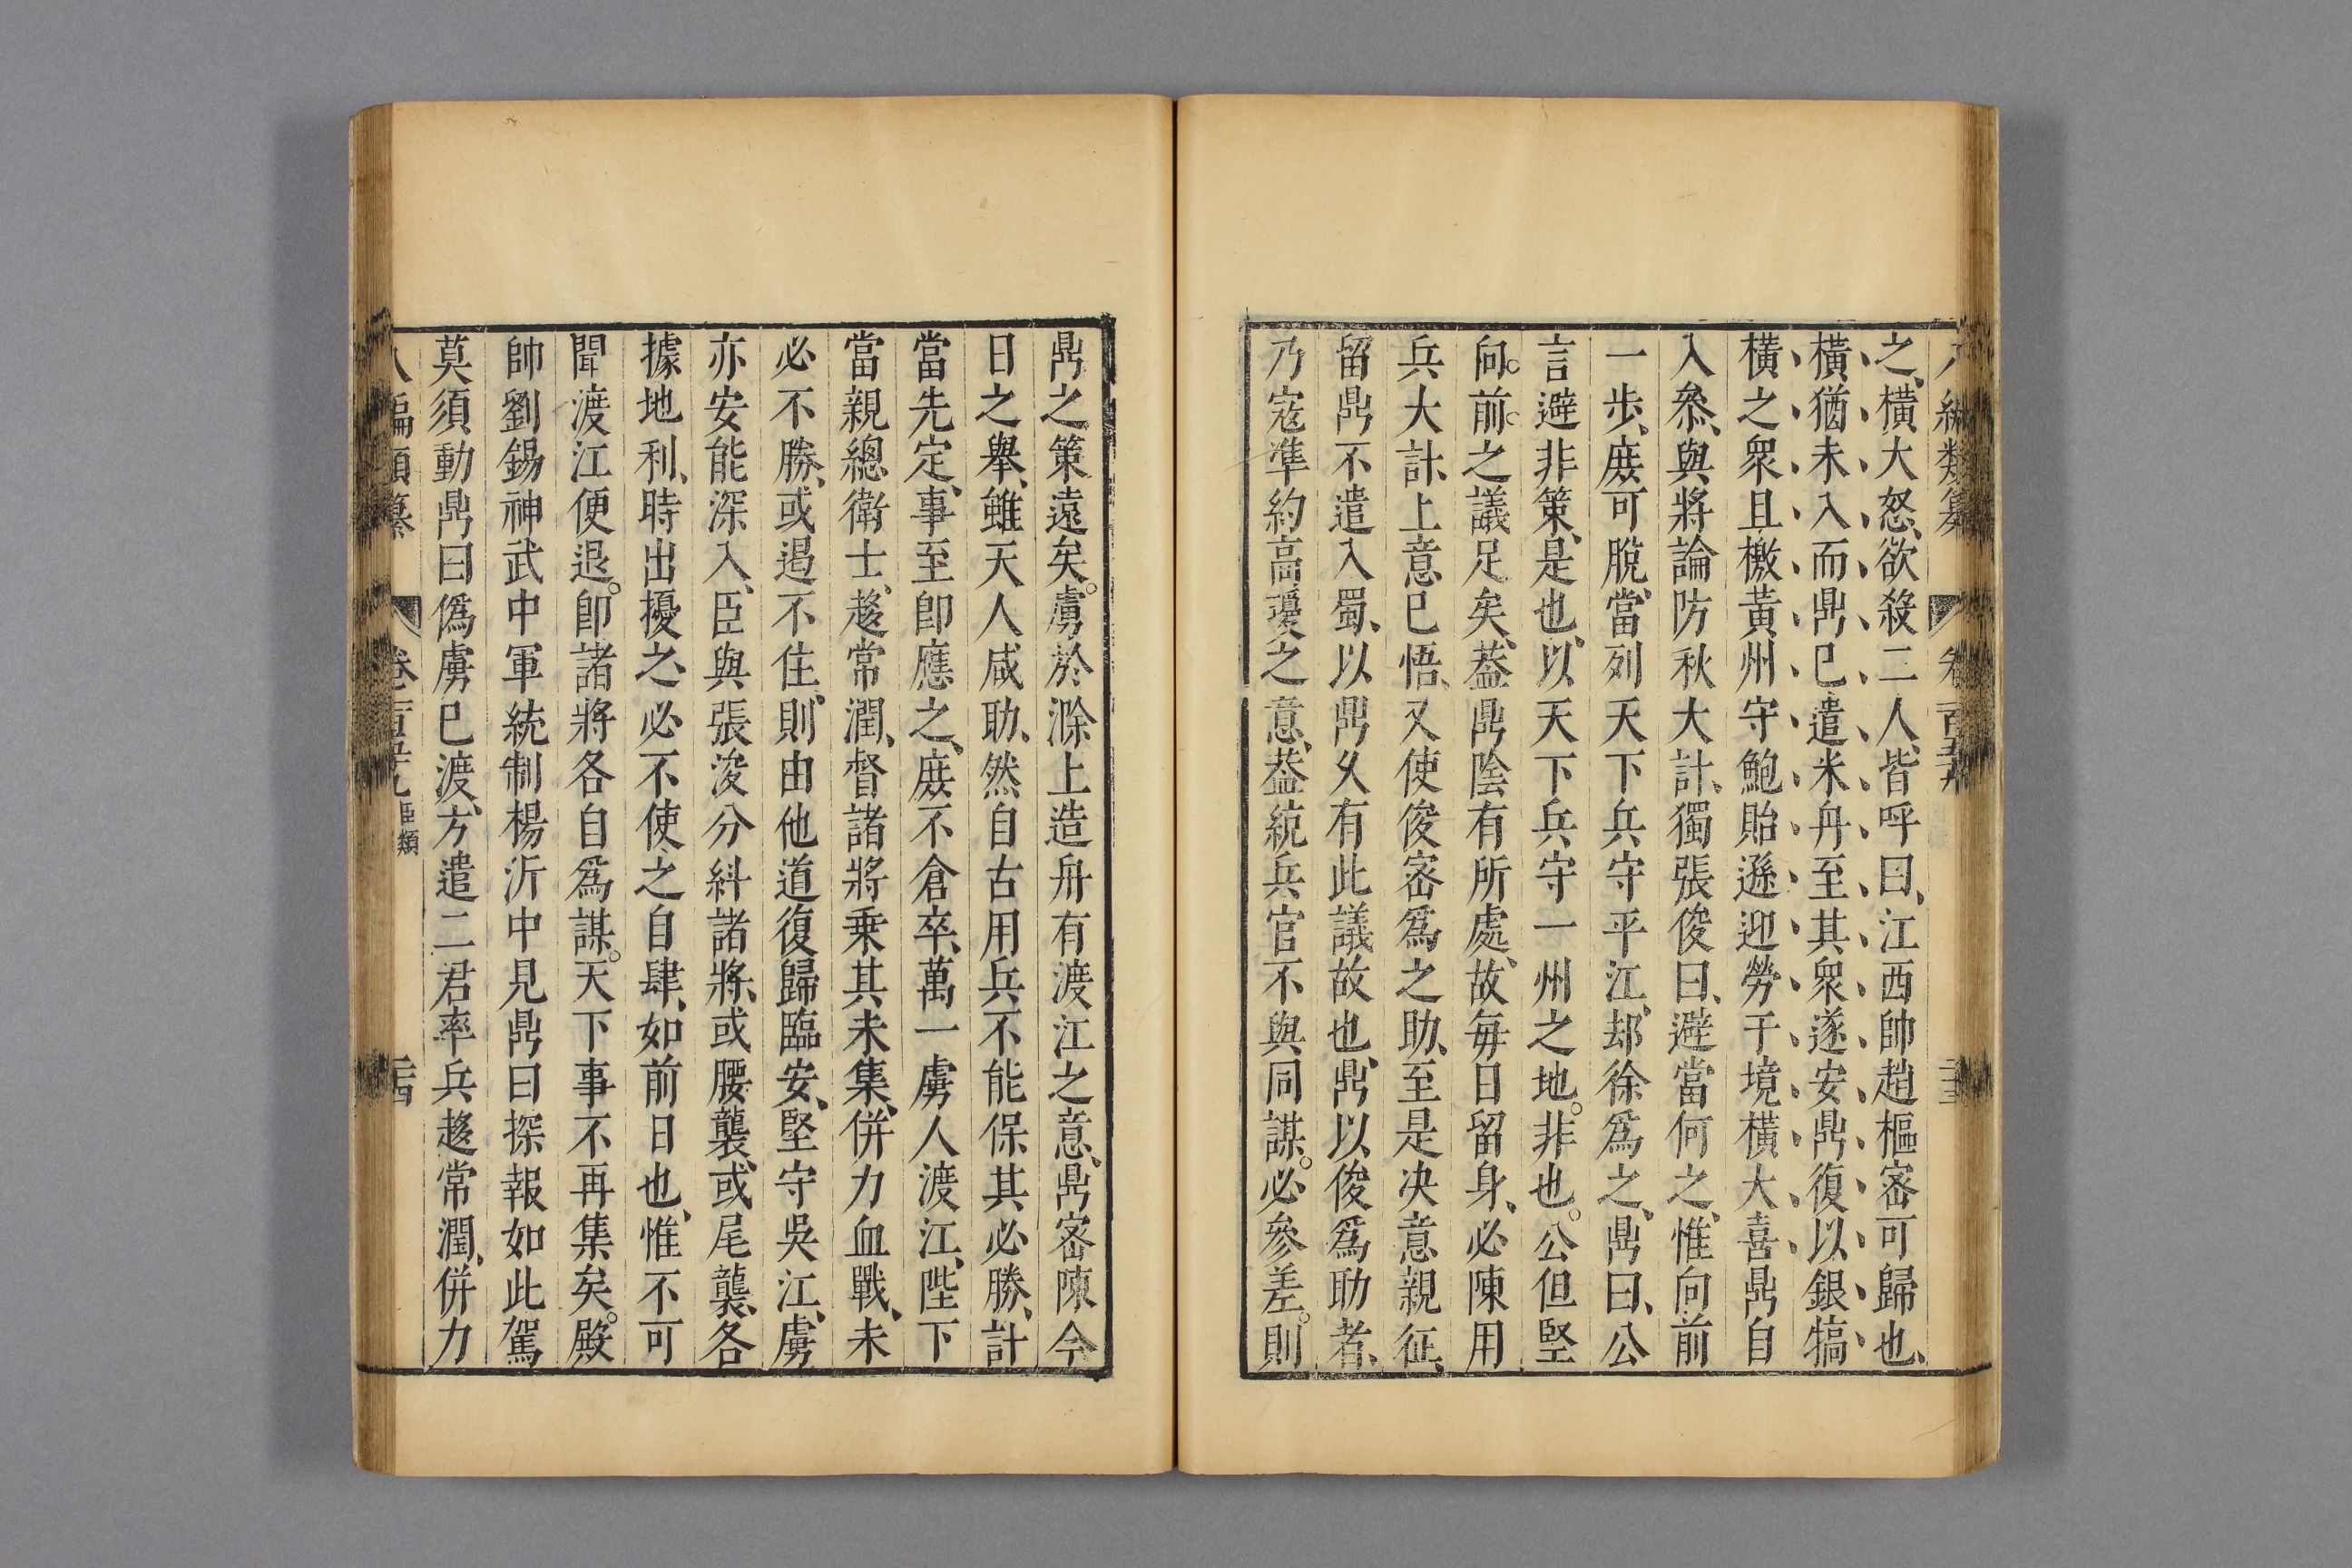 之、橫大怒、欲殺二人、皆呼曰、江西帥趙樞密可歸也、
橫猶未入而鼎已遣米舟至其衆遂安鼎復以銀犒
橫之衆且檄黃州守鮑貽遜迎勞于境橫大喜鼎自
入叅、與將論防秋大計、獨張俊曰、避當何之、惟向前
一步、庻可脫、當列天下兵守平江、却徐爲之、鼎曰、公
言避非策、是也、以天下兵守一州之地。非也。公但堅
向。前。之議足矣、葢鼎陰有所處、故每日留身、必陳用
兵大計、上意已悟、又使俊密爲之助、至是决意親征、
留鼎不遣入蜀、以鼎久有此議故也、鼎以俊爲助者、
乃宼凖約高瓊之意、葢統兵官不與同謀。必參差。則
鼎之策遠矣。虜於滁上造舟有渡江之意、鼎密陳今
日之舉、雖天人咸助、然自古用兵不能保其必勝、計
當先定、事至卽應之、庻不倉卒、萬一虜人渡江、陛下
當親總衛士、趍常潤、督諸將乗其未集、併力血戰、未
必不勝、或遏不住、則由他道復歸臨安、堅守吳江、虜
亦安能深入、臣與張浚分糾諸將、或腰襲、或尾襲、各
據地利、時出擾之、必不使之自肆、如前日也、惟不可
聞渡江便退。卽諸將各自爲謀。天下事不再集矣。殿
帥劉錫神武中軍統制楊沂中見鼎曰探報如此駕
莫須動鼎曰僞虜已渡、方遣二君率兵趍常潤、併力
編類纂 卷 類 二十四